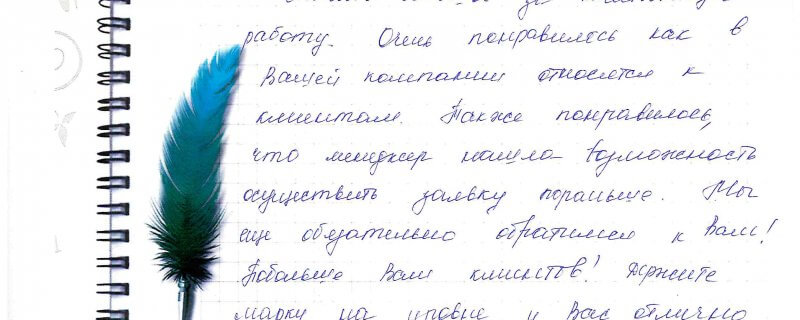 работу. Очень понравилось как в
Вашей компании относятся к
клиентам. Также понравилось,
что менеджер нашла возможность
осуществить заявку пораньше. Мы
еще обязательно обратимся к Вам!
Побольше Вам клиентов! Держите
марку на уровне и Вас отлично